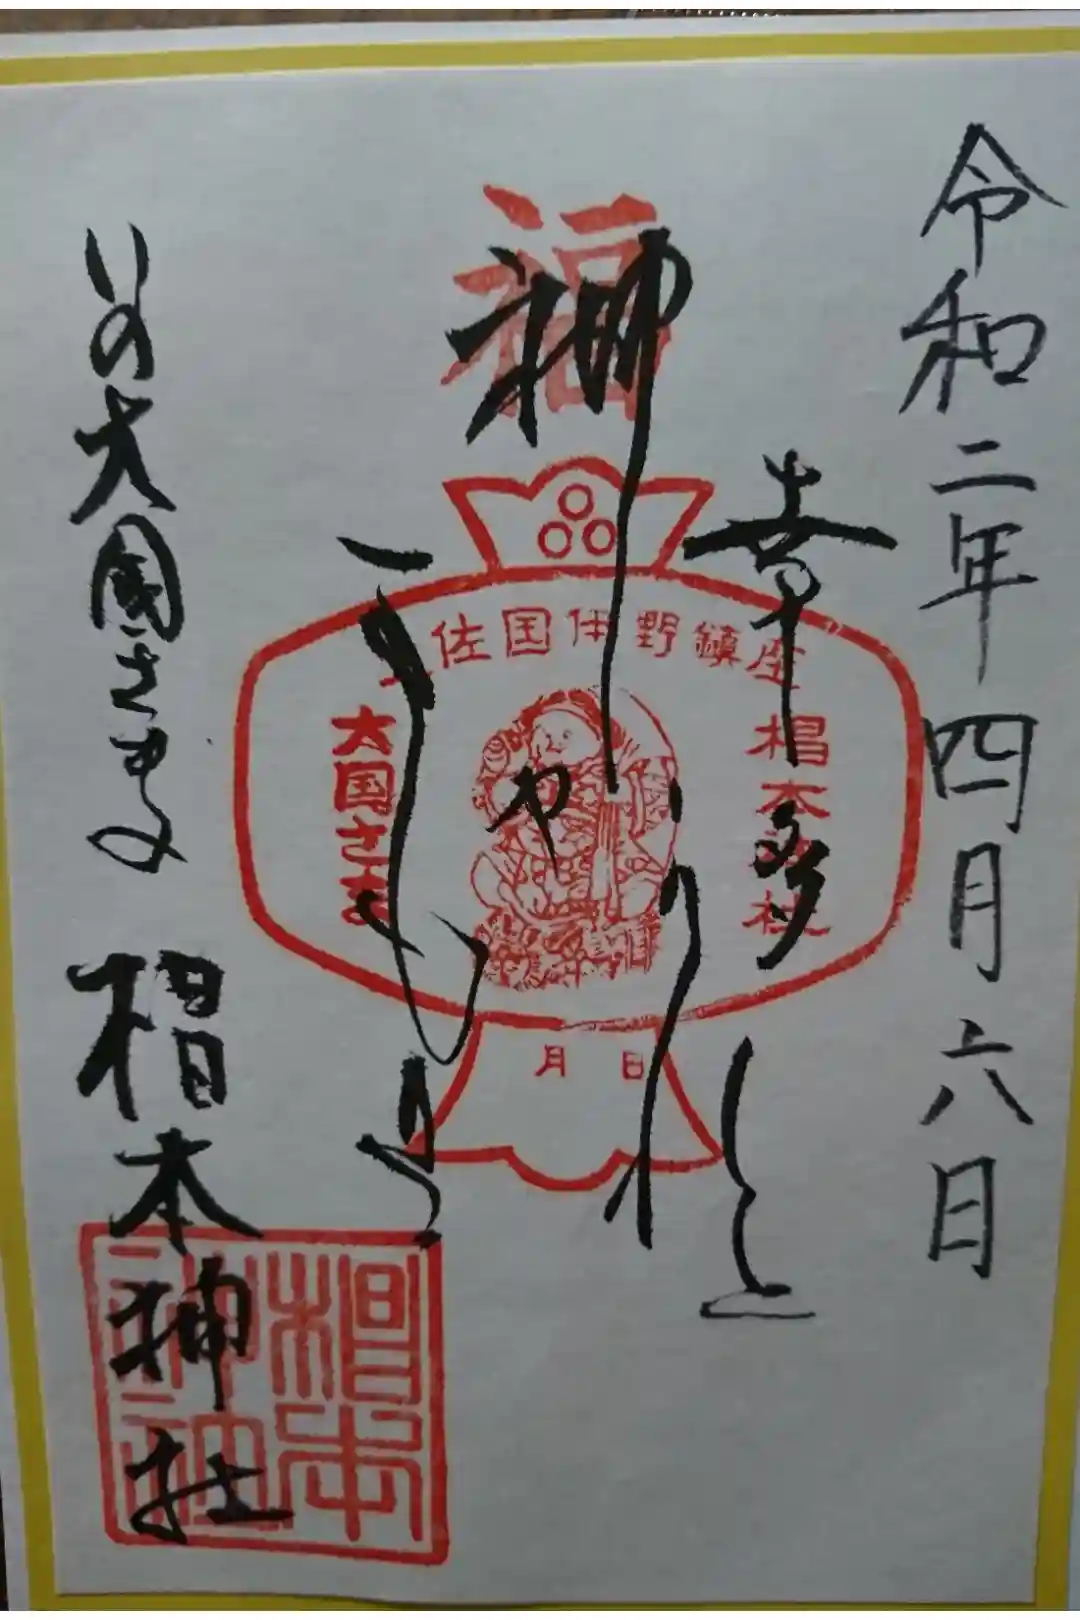 令和二年四月六日
幸多
福
神
土佐国伊野鎮座
椙本神社
大国さま
月 日
いの大国さま 椙本神社
椙本
神社